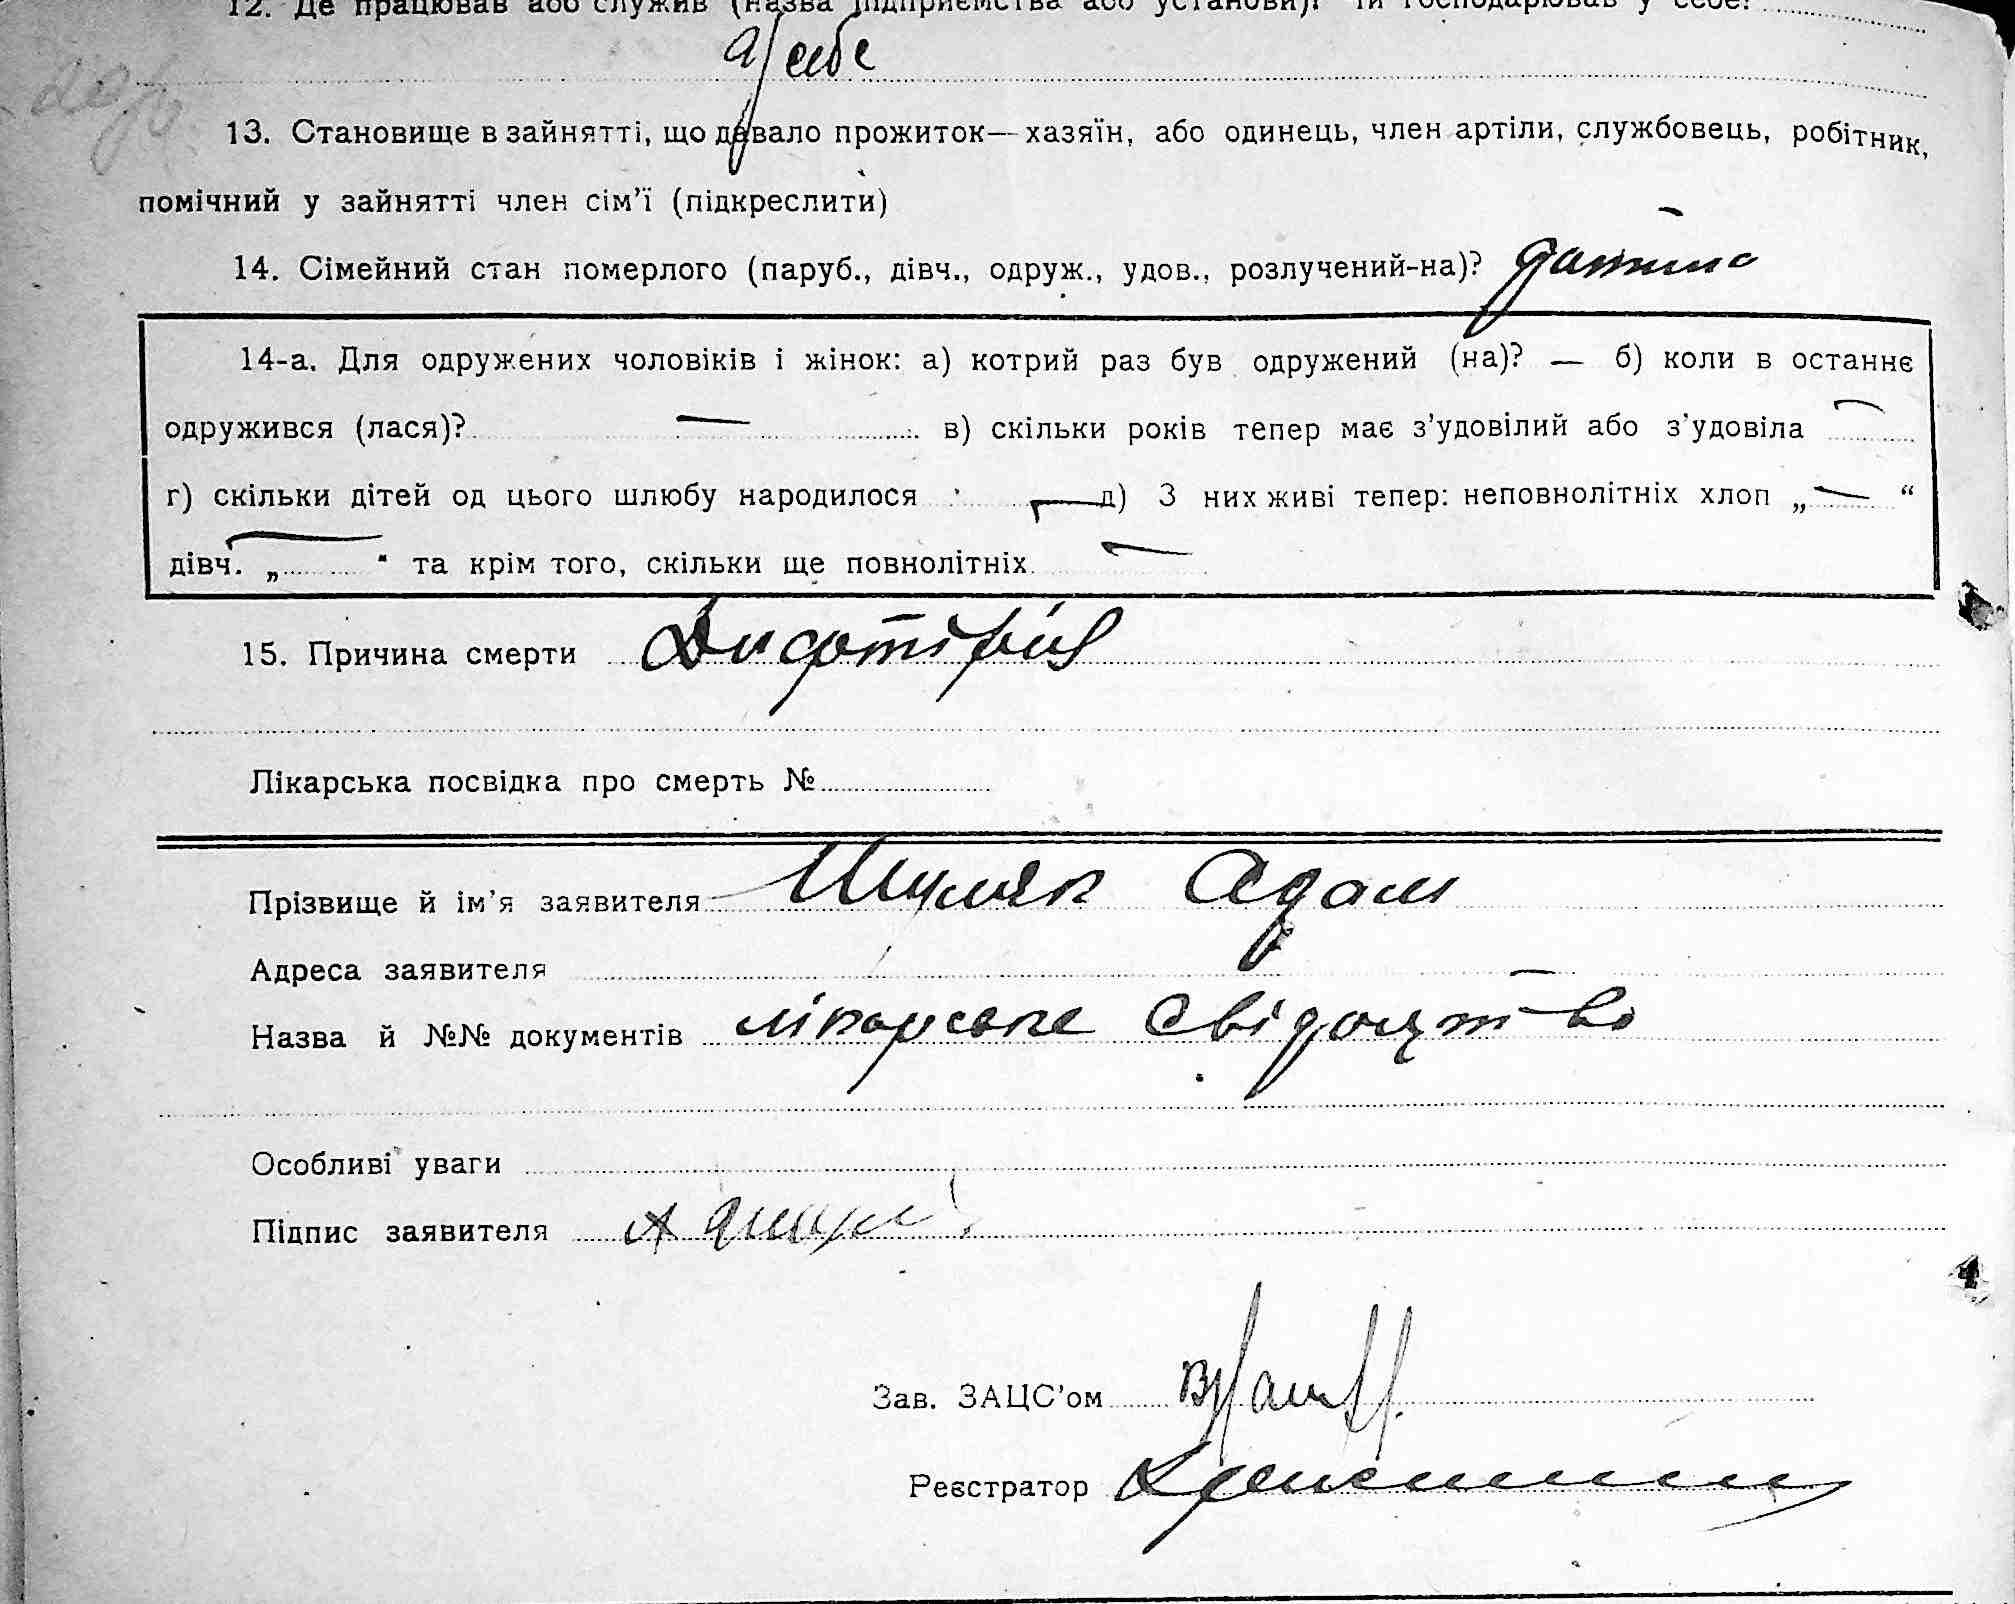 12. Де працював або служив (назва підприємства або установи)? Чи господарював у себе?
у себе
13. Становище в зайнятті, що давало прожиток— хазяїн, або одинець, член артіли, службовець, робітник,
помічний у зайнятті член сім'ї (підкреслити)
14. Сімейний стан померлого (паруб., дівч., одруж., удов., розлучений-на)? дитина
14-а. Для одружених чоловіків і жінок: а) котрий раз був одружений (на)? — б) коли в останнє
одружився (лася)? — в) скільки років тепер має з'удовілий або з'удовіла —
г) скільки дітей од цього шлюбу народилося — д) З них живі тепер: неповнолітніх хлоп „ — “
дівч. „ — “ та крім того, скільки ще повнолітніх —
15. Причина смерти Дифтірія
Лікарська посвідка про смерть №
Прізвище й ім'я заявителя Шуляк Адам
Адреса заявителя
Назва й №№ документів лікарське свідоцтво
Особливі уваги
Підпис заявителя А
Зав. ЗАЦС'ом
Реєстратор